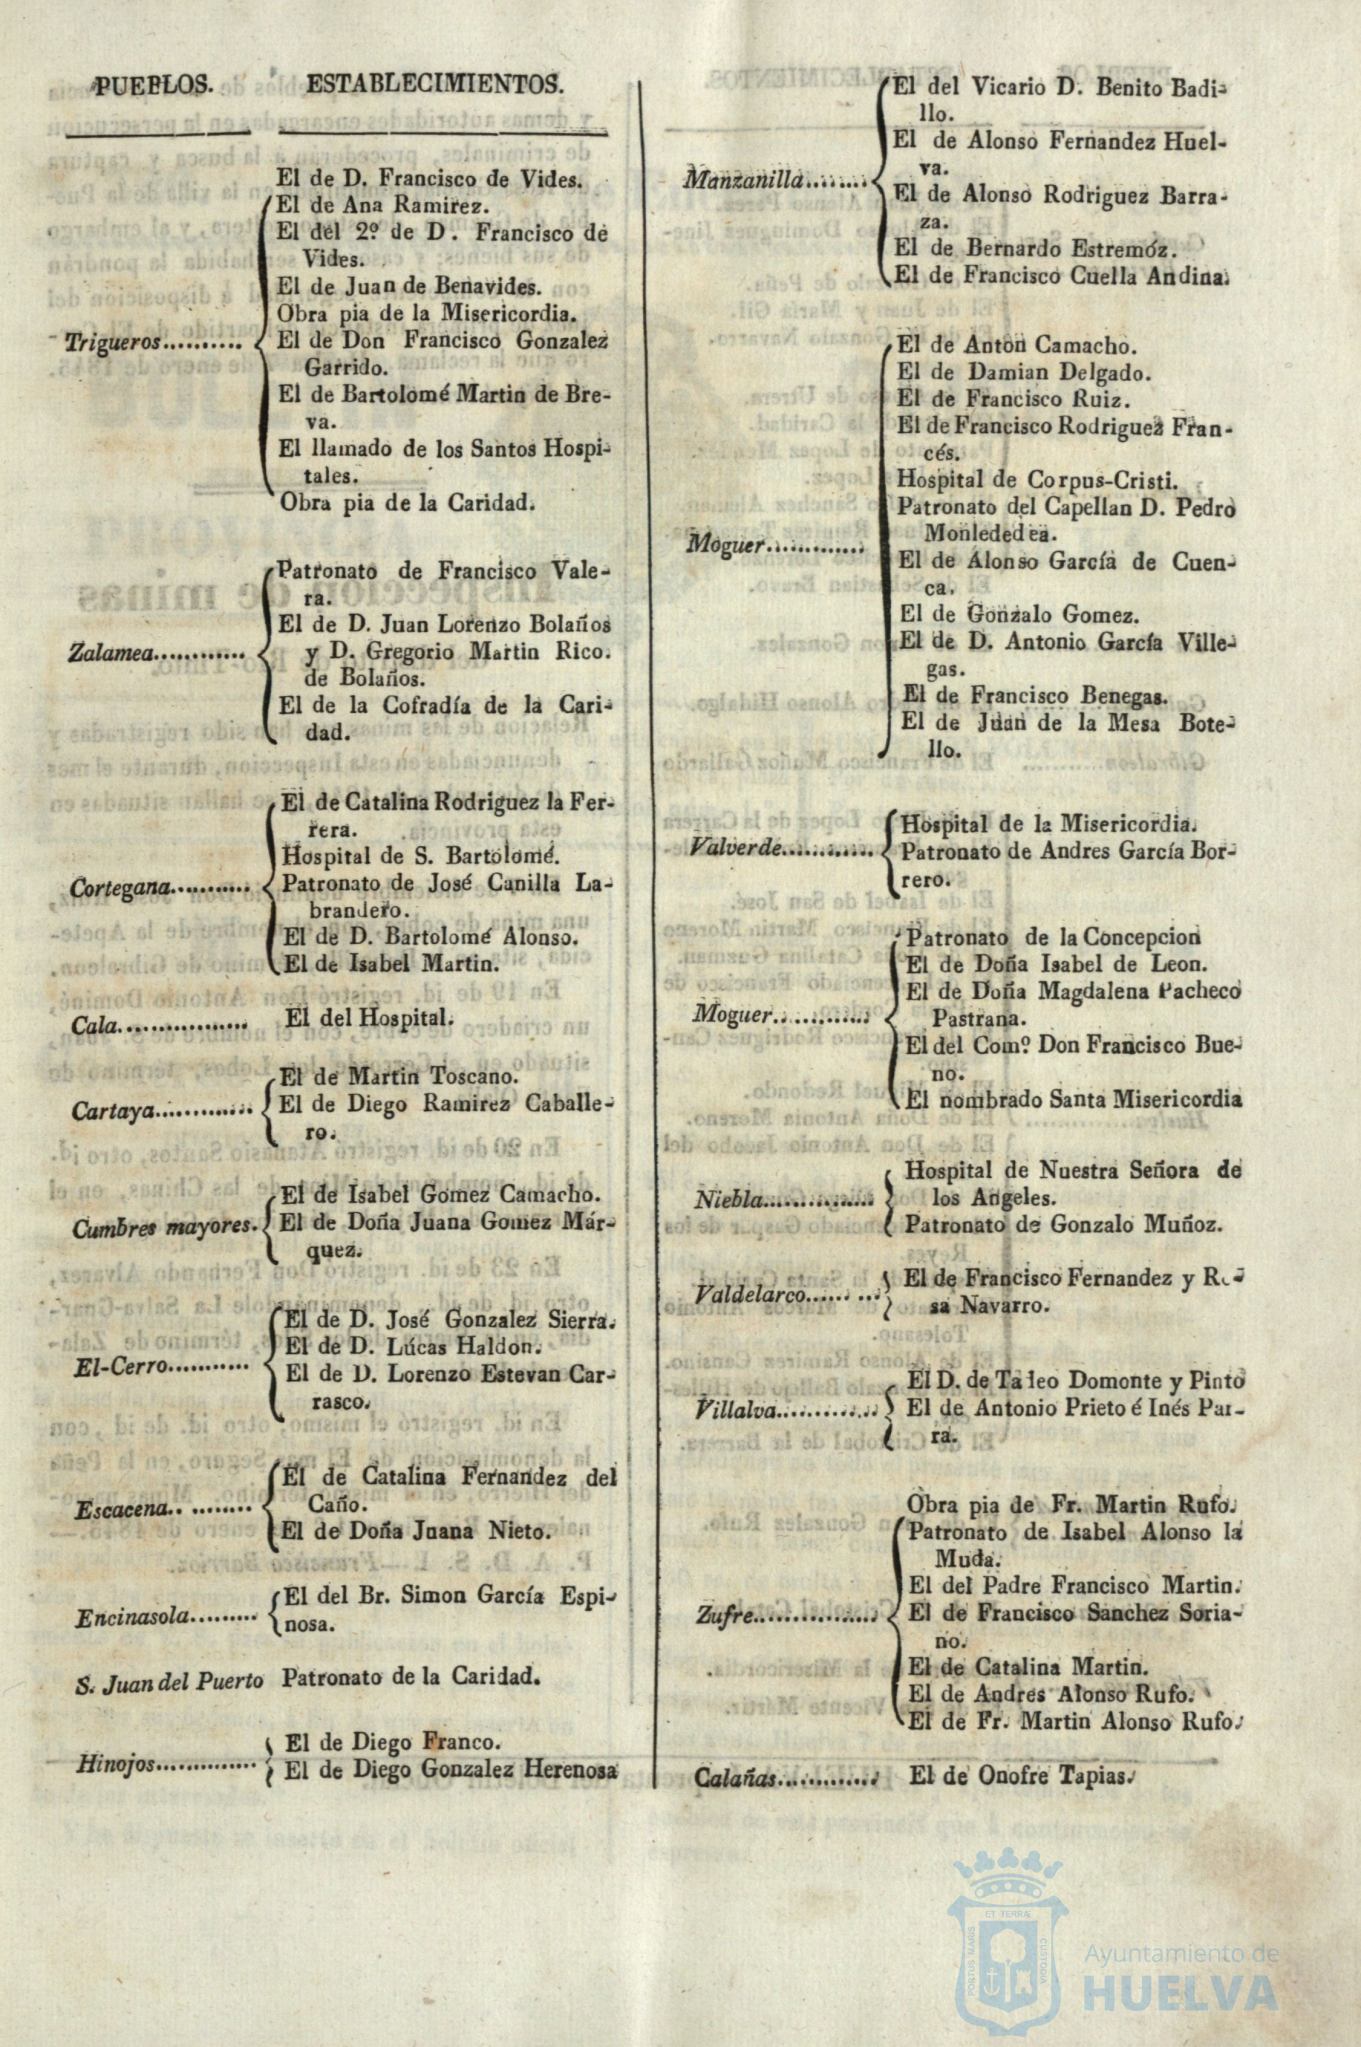 PUEBLOS. ESTABLECIMIENTOS.
El de D. Francisco de Vides.
El de Ana Ramirez.
El del 2º de D. Francisco de
Vides.
El de Juan de Benavides.
Obra pia de la Misericordia.
Trigueros.......... El de Don Francisco Gonzalez
Garrido.
El de Bartolomé Martin de Bre-
va.
El llamado de los Santos Hospi-
tales.
Obra pia de la Caridad.
Patronato de Francisco Vale-
ra.
El de D. Juan Lorenzo Bolaños
Zalamea............ y D. Gregorio Martin Rico.
de Bolaños.
El de la Cofradía de la Cari-
dad.
El de Catalina Rodriguez la Fer-
rera.
Hospital de S. Bartolomé.
Cortegana........... Patronato de José Canilla La-
brandero.
El de D. Bartolomé Alonso.
El de Isabel Martin.
Cala................. El del Hospital.
El de Martin Toscano.
Cartaya............. El de Diego Ramirez Caballe-
ro.
El de Isabel Gomez Camacho.
Cumbres mayores. El de Doña Juana Gomez Már-
quez.
El de D. José Gonzalez Sierra.
El de D. Lúcas Haldon.
El-Cerro........... El de D. Lorenzo Estevan Car-
rasco.
El de Catalina Fernandez del
Escacena.. ........ Caño.
El de Doña Juana Nieto.
El del Br. Simon García Espi-
Encinasola......... nosa.
S. Juan del Puerto Patronato de la Caridad.
El de Diego Franco.
Hinojos............. El de Diego Gonzalez Herenosa
El del Vicario D. Benito Badi-
llo.
El de Alonso Fernandez Huel-
Manzanilla........ va.
El de Alonso Rodriguez Barra-
za.
El de Bernardo Estremóz.
El de Francisco Cuella Andina.
El de Anton Camacho.
El de Damian Delgado.
El de Francisco Ruiz.
El de Francisco Rodriguez Fran-
cés.
Hospital de Corpus-Cristi.
Patronato del Capellan D. Pedro
Moguer............. Monlededea.
El de Alonso García de Cuen-
ca.
El de Gonzalo Gomez.
El de D. Antonio García Ville-
gas.
El de Francisco Benegas.
El de Juan de la Mesa Bote-
llo.
Hospital de la Misericordia.
Valverde............ Patronato de Andres García Bor-
rero.
Patronato de la Concepcion
El de Doña Isabel de Leon.
El de Doña Magdalena Pacheco
Moguer............. Pastrana.
El del Comº. Don Francisco Bue-
no.
El nombrado Santa Misericordia
Hospital de Nuestra Señora de
Niebla............... los Angeles.
Patronato de Gonzalo Muñoz.
El de Francisco Fernandez y Ro-
Valdelarco...... ... sa Navarro.
El D. de Tadeo Domonte y Pinto
Villalva.............. El de Antonio Prieto é Inés Par-
ra.
Obra pia de Fr. Martin Rufo.
Patronato de Isabel Alonso la
Muda.
El del Padre Francisco Martin.
Zufre................ El de Francisco Sanchez Soria-
no.
El de Catalina Martin.
El de Andres Alonso Rufo.
El de Fr. Martin Alonso Rufo.
Calañas............. El de Onofre Tapias.
ET TERRÆ
PORTUS MARIS
CUSTODIA
Ayuntamiento de
HUELVA